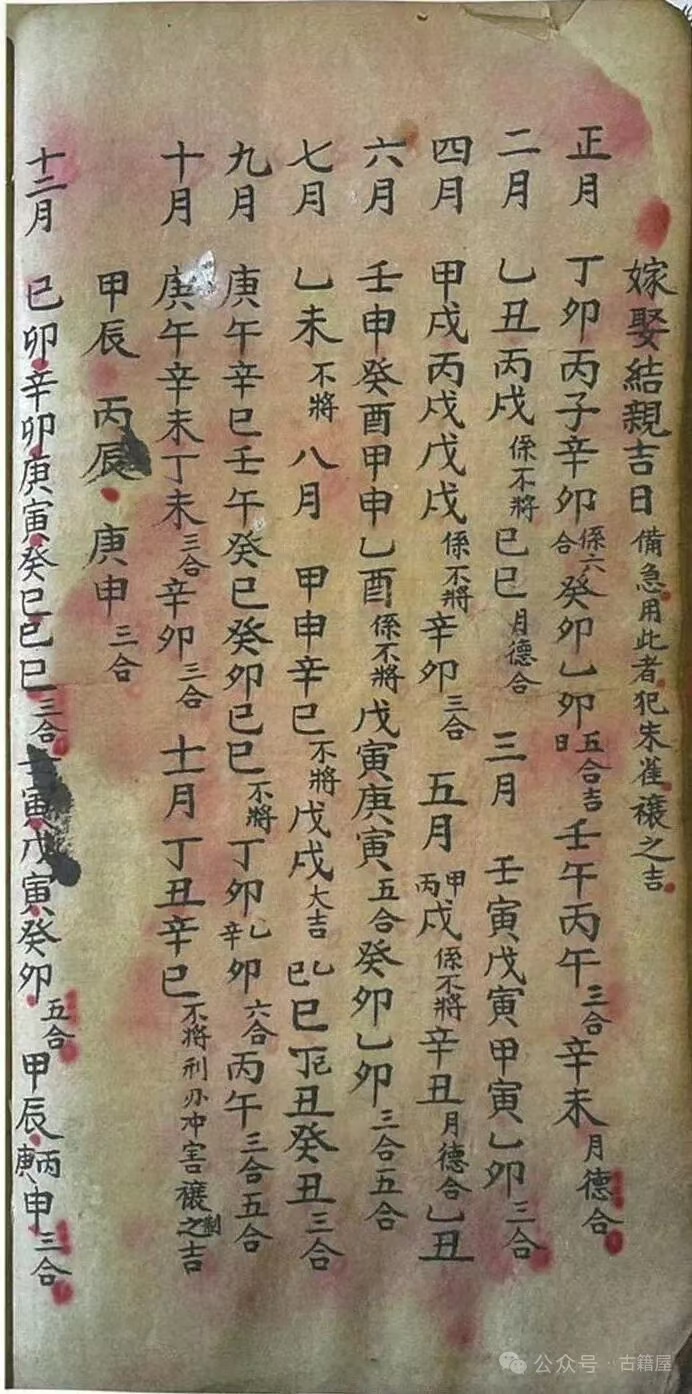 嫁娶結親吉日 備急用此者犯朱雀禳之吉
正月 丁卯丙子辛卯係六合癸卯乙卯五合吉日壬午丙午三合辛未月德合
二月 乙丑丙戌係不將己巳月德合 三月 壬寅戊寅甲寅乙卯三合
四月 甲戌丙戌戊戌係不將辛卯三合 五月 甲丙戌係不將辛丑月德合乙丑
六月 壬申癸酉甲申乙酉係不將戊寅庚寅五合癸卯乙卯三合五合
七月 乙未不將 八月 甲申辛巳不將戊戌大吉乙己巳丁己丑癸丑三合
九月 庚午辛巳壬午癸巳癸卯己巳不將丁卯乙辛卯六合丙午三合五合
十月 庚午辛未丁未三合辛卯三合 十一月丁丑辛巳不將刑冲害禳制之吉
甲辰 丙辰 庚申三合
十二月 己卯辛卯庚寅癸巳己巳三合壬寅戊寅癸卯五合甲辰丙庚申三合
公众号·古籍屋